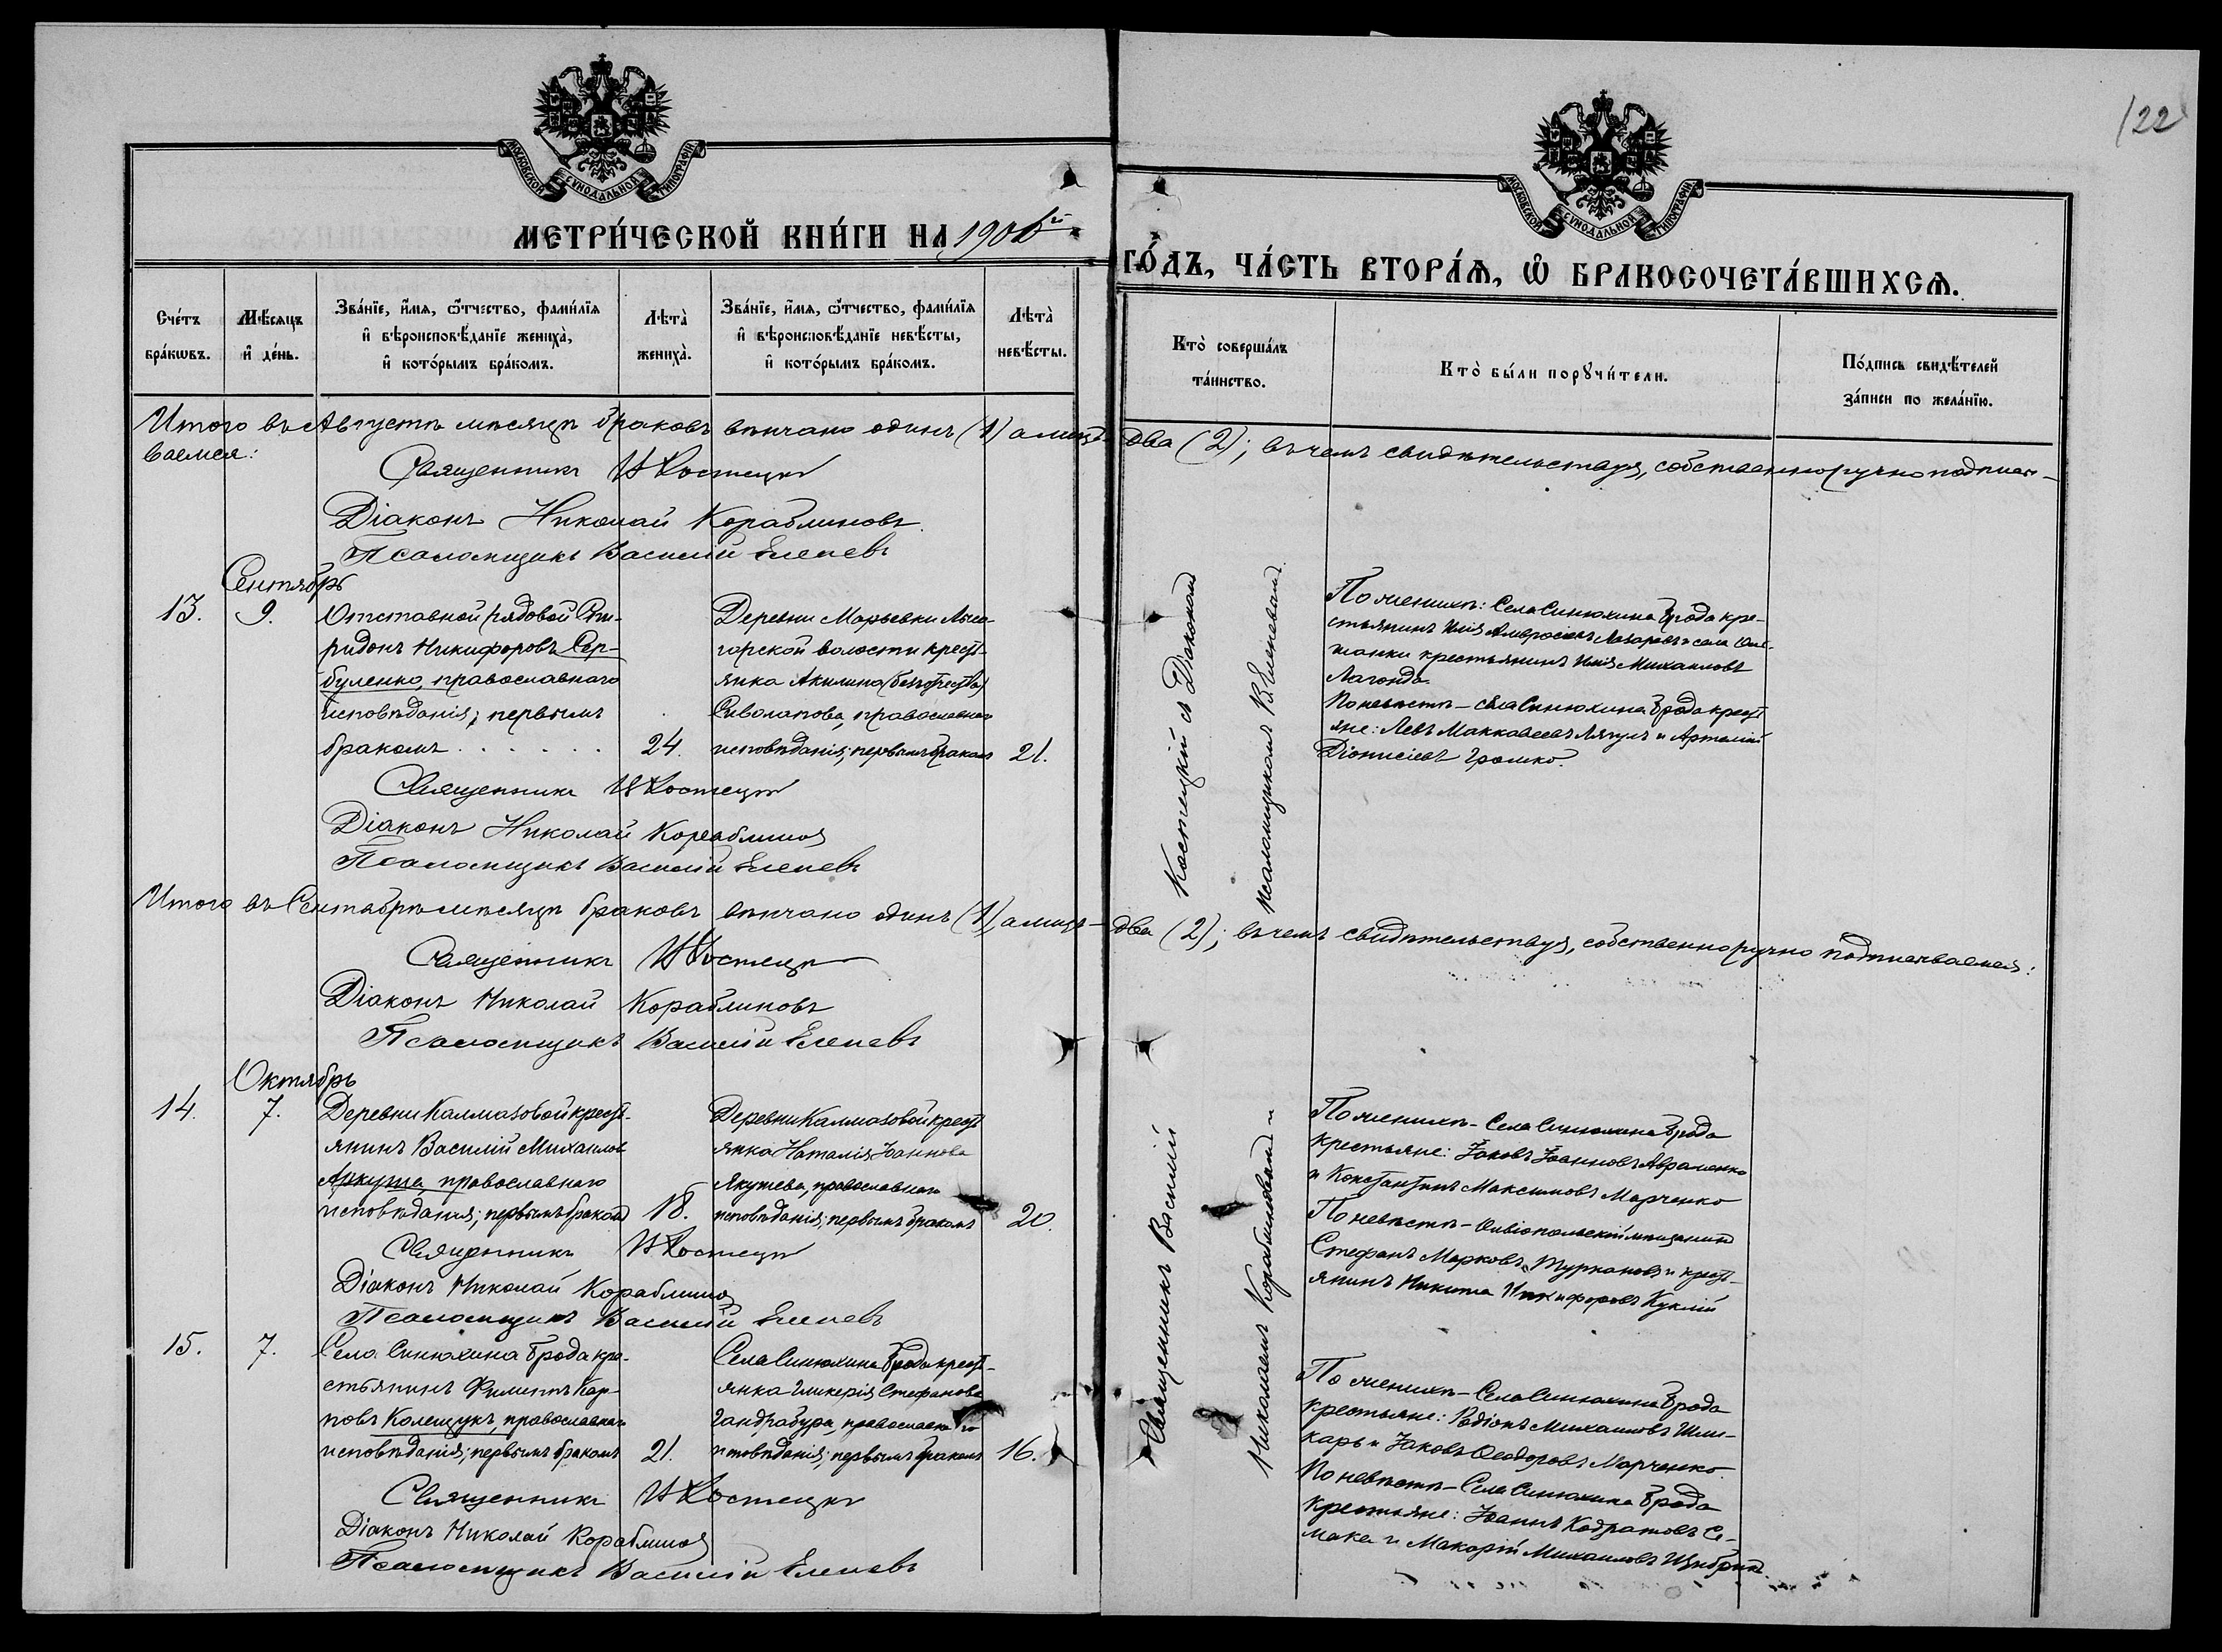 122
МОСКОВСКОЙ СѴНОДАЛЬНОЙ ТИПОГРАФІИ
МОСКОВСКОЙ СѴНОДАЛЬНОЙ ТИПОГРАФІИ
МЕТРИ́ЧЕСКОЙ КНИ́ГИ НА 1906й
ГО́ДЪ, ЧА́СТЬ ВТОРА́Ѧ, Ѡ҆ БРАКОСОЧЕТА́ВШИХСѦ.
Сче́тъ бра́кѡвъ.
Мѣ́сяцъ и҆ де́нь.
Зва́нїе, и҆́мя, ѻ҆́тчество, фами́лїя и҆ вѣроисповѣ́данїе жениха̀, и҆ кото́рымъ бра́комъ.
Лѣта̀ жениха̀.
Зва́нїе, и҆́мя, ѻ҆́тчество, фами́лїя и҆ вѣроисповѣ́данїе невѣ́сты, и҆ кото́рымъ бра́комъ.
Лѣта̀ невѣ́сты.
Кто̀ соверша́лъ та́инство.
Кто̀ бы́ли порꙋчи́тели.
По́дпись свидѣ́телей за́писи по жела́нїю.
Итого въ Августѣ мѣсяцѣ браковъ вѣнчано одинъ (1), а лицъ – два (2); въ чемъ свидѣтельствуя, собственноручно подписы-
ваемся:
Священникъ В Костецкій
Діаконъ Николай Кораблиновъ.
Псаломщикъ Василій Еленевъ
Сентябрь
13.
9.
Отставной рядовой Спи-
ридонъ Никифоровъ Сер-
буленко, православнаго
исповѣданія; первымъ
бракомъ . . . . . .
24.
Деревни Марьевки Лысо-
горской волости крест-
янка Акилина (безъ отчества)
Сиволапова, православнаго
исповѣданія; первымъ бракомъ
21.
Костецкій съ Діакономъ
псаломщикомъ В. Еленевымъ.
По женихѣ: Села Синюхина Брода кре-
стьянинъ Илія Амвросіевъ Лазаревъ и села
крестьянинъ Илія Михаиловъ
Лагонда.
По невѣстѣ – села Синюхина Брода крест
яне: Левъ Маккавеевъ Лягулъ и Артемій
Діонисіевъ Громко.
Священникъ В Костецкій
Діаконъ Николай Кораблиновъ
Псаломщикъ Василій Еленевъ
Итого въ Сентябрѣ мѣсяцѣ браковъ вѣнчано одинъ (1), а лицъ – два (2); въ чемъ свидѣтельствуя, собственноручно подписываемся:
Священникъ В Костецкій
Діаконъ Николай Кораблиновъ
Псаломщикъ Василій Еленевъ
Октябрь
14.
7.
Деревни Калмазовой крест-
янинъ Василій Михаилов
Аркуша, православнаго
исповѣданія; первымъ бракомъ
18.
Деревни Калмазовой крест
янка Наталія Іоаннова
Якушева, православнаго
исповѣданія; первымъ бракомъ
20.
Священникъ Василій
Николаемъ Кораблиновымъ и
По женихѣ – Села Синюхина Брода
крестьяне: Іаковъ Іоанновъ Авраменко
и Константинъ Максимовъ Марченко
По невѣстѣ – Ольвіопольскій мѣщанинъ
Стефанъ Марковъ Туркановъ и крест-
янинъ Никита Никифоровъ Куклій
Священникъ В Костецкій
Діаконъ Николай Кораблиновъ
Псаломщикъ Василій Еленевъ
15.
7.
Села Синюхина Брода кре-
стьянинъ Филиппъ Кар-
повъ Колещукъ, православнаго
исповѣданія; первымъ бракомъ
21.
Села Синюхина Брода крест-
янка Гликерія Стефанова
Гандрабура, православнаго
исповѣданія; первымъ бракомъ
16.
По женихѣ – Села Синюхина Брода
крестьяне: Родіонъ Михаиловъ Шин-
карь и Іаковъ Ѳеодоровъ Марченко.
По невѣстѣ – Села Синюхина Брода
крестьяне: Іоаннъ Кодратовъ Се-
мака и Макарій Михаиловъ Щибрик.
Священникъ В Костецкій
Діаконъ Николай Кораблиновъ
Псаломщикъ Василій Еленевъ